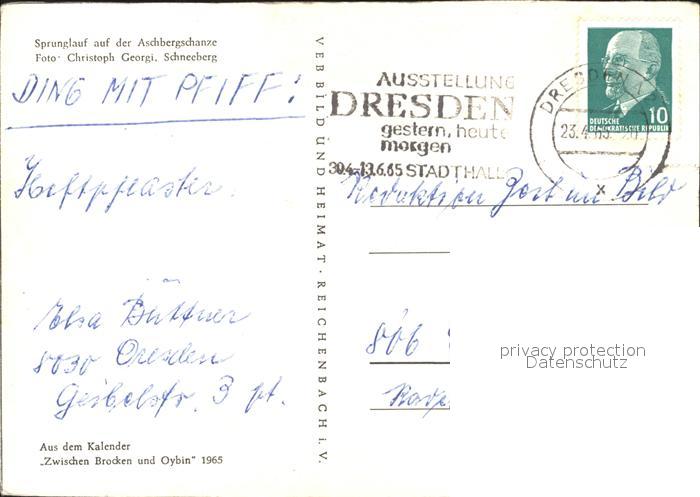 Sprunglauf auf der Aschbergschanze
Foto: Christoph Georgi, Schneeberg
DING MIT PFIFF:
Heftpflaster.
Elsa Büttner
8030 Dresden
Geibelstr. 3 pt.
Aus dem Kalender
„Zwischen Brocken und Oybin" 1965
VEB BILD UND HEIMAT · REICHENBACH i. V.
AUSSTELLUNG
DRESDEN
gestern, heute
morgen
30.4.-13.6.65 STADTHALLE
DRESDEN
23.4.65
10
DEUTSCHE
DEMOKRATISCHE REPUBLIK
Redaktion Zeit im Bild
806
privacy protection
Datenschutz